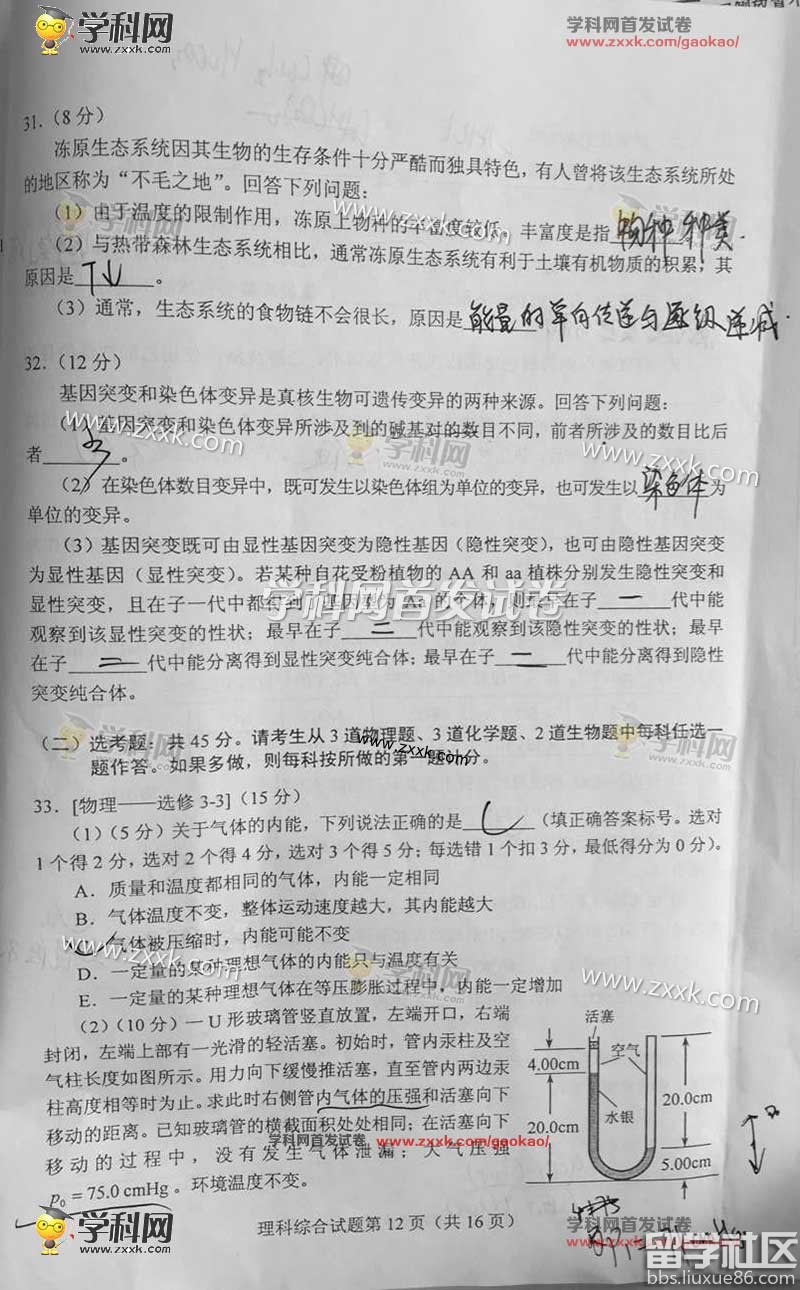 学科网 学科网首发试卷
www.zxxk.com www.zxxk.com/gaokao/
31.（8分）
冻原生态系统因其生物的生存条件十分严酷而独具特色，有人曾将该生态系统所处
的地区称为“不毛之地”。回答下列问题：
（1）由于温度的限制作用，冻原上物种的丰富度较低。丰富度是指物种种类。
（2）与热带森林生态系统相比，通常冻原生态系统有利于土壤有机物质的积累，其
原因是T↓。
（3）通常，生态系统的食物链不会很长，原因是能量的单向传递与逐级递减.
32.（12分）
基因突变和染色体变异是真核生物可遗传变异的两种来源。回答下列问题：
（1）基因突变和染色体变异所涉及到的碱基对的数目不同，前者所涉及的数目比后
者少。
（2）在染色体数目变异中，既可发生以染色体组为单位的变异，也可发生以染色体为
单位的变异。
（3）基因突变既可由显性基因突变为隐性基因（隐性突变），也可由隐性基因突变
为显性基因（显性突变）。若某种自花受粉植物的 AA 和 aa 植株分别发生隐性突变和
显性突变，且在子一代中都得到了基因型为 Aa 的个体，则最早在子一代中能
观察到该显性突变的性状；最早在子二代中能观察到该隐性突变的性状；最早
在子三代中能分离得到显性突变纯合体；最早在子二代中能分离得到隐性
突变纯合体。
（二）选考题：共45分。请考生从3道物理题、3道化学题、2道生物题中每科任选一
题作答。如果多做，则每科按所做的第一题计分。
33. [物理——选修 3-3]（15分）
（1）（5分）关于气体的内能，下列说法正确的是C（填正确答案标号。选对
1个得2分，选对2个得4分，选对3个得5分；每选错1个扣3分，最低得分为0分）。
A．质量和温度都相同的气体，内能一定相同
B．气体温度不变，整体运动速度越大，其内能越大
C．气体被压缩时，内能可能不变
D．一定量的某种理想气体的内能只与温度有关
E．一定量的某种理想气体在等压膨胀过程中，内能一定增加
（2）（10分）一 U 形玻璃管竖直放置，左端开口，右端
封闭，左端上部有一光滑的轻活塞。初始时，管内汞柱及空
气柱长度如图所示。用力向下缓慢推活塞，直至管内两边汞
柱高度相等时为止。求此时右侧管内气体的压强和活塞向下
移动的距离。已知玻璃管的横截面积处处相同；在活塞向下
移动的过程中，没有发生气体泄漏；大气压强
p₀ = 75.0 cmHg。环境温度不变。
活塞
空气
4.00cm
水银
20.0cm
20.0cm
5.00cm
学科网首发试卷 www.zxxk.com/gaokao/
理科综合试题第 12 页（共 16 页）
学科网
www.zxxk.com
留学社区
bbs.liuxue86.com